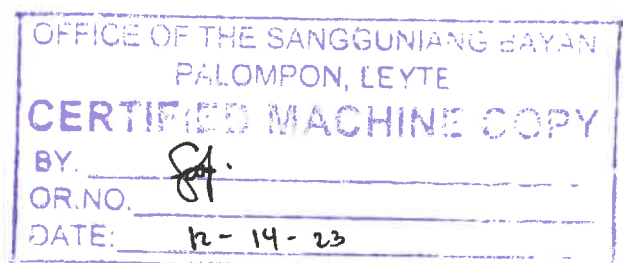 OFFICE OF THE SANGGUNIANG BAYAN
PALOMPON, LEYTE
CERTIFIED MACHINE COPY
BY.
OR.NO.
DATE: 12-14-23